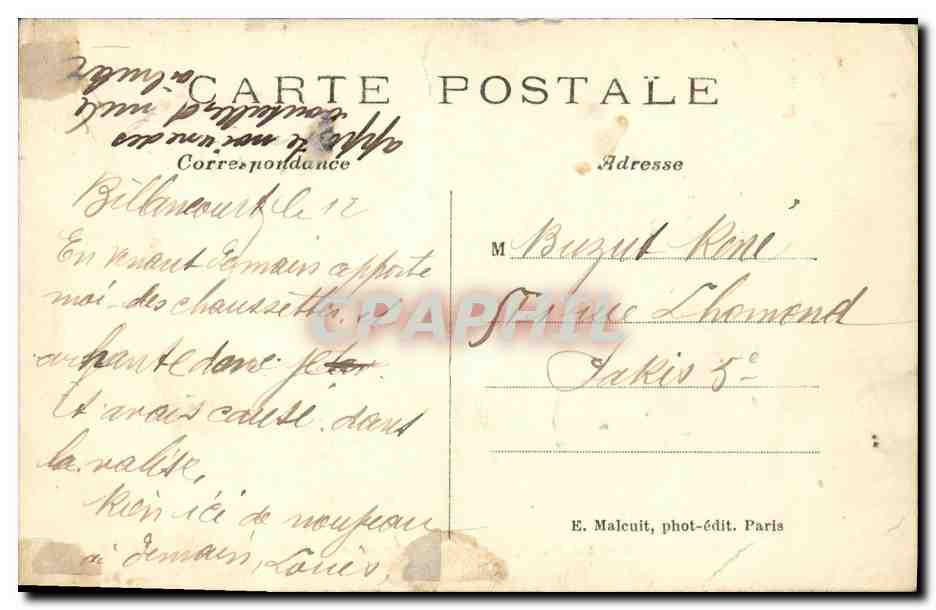 CARTE POSTALE
Correspondance
Adresse
Billancourt, le 12
En venant demain apporte
moi des chaussettes, et
donc je
t'avais causé. dans
la valise,
Rien ici de nouveau
à demain, Louis,
apporte moi une des
M Buzut René
rue Lhomond
Paris 5e
E. Malcuit, phot-édit. Paris
CPAPHIL